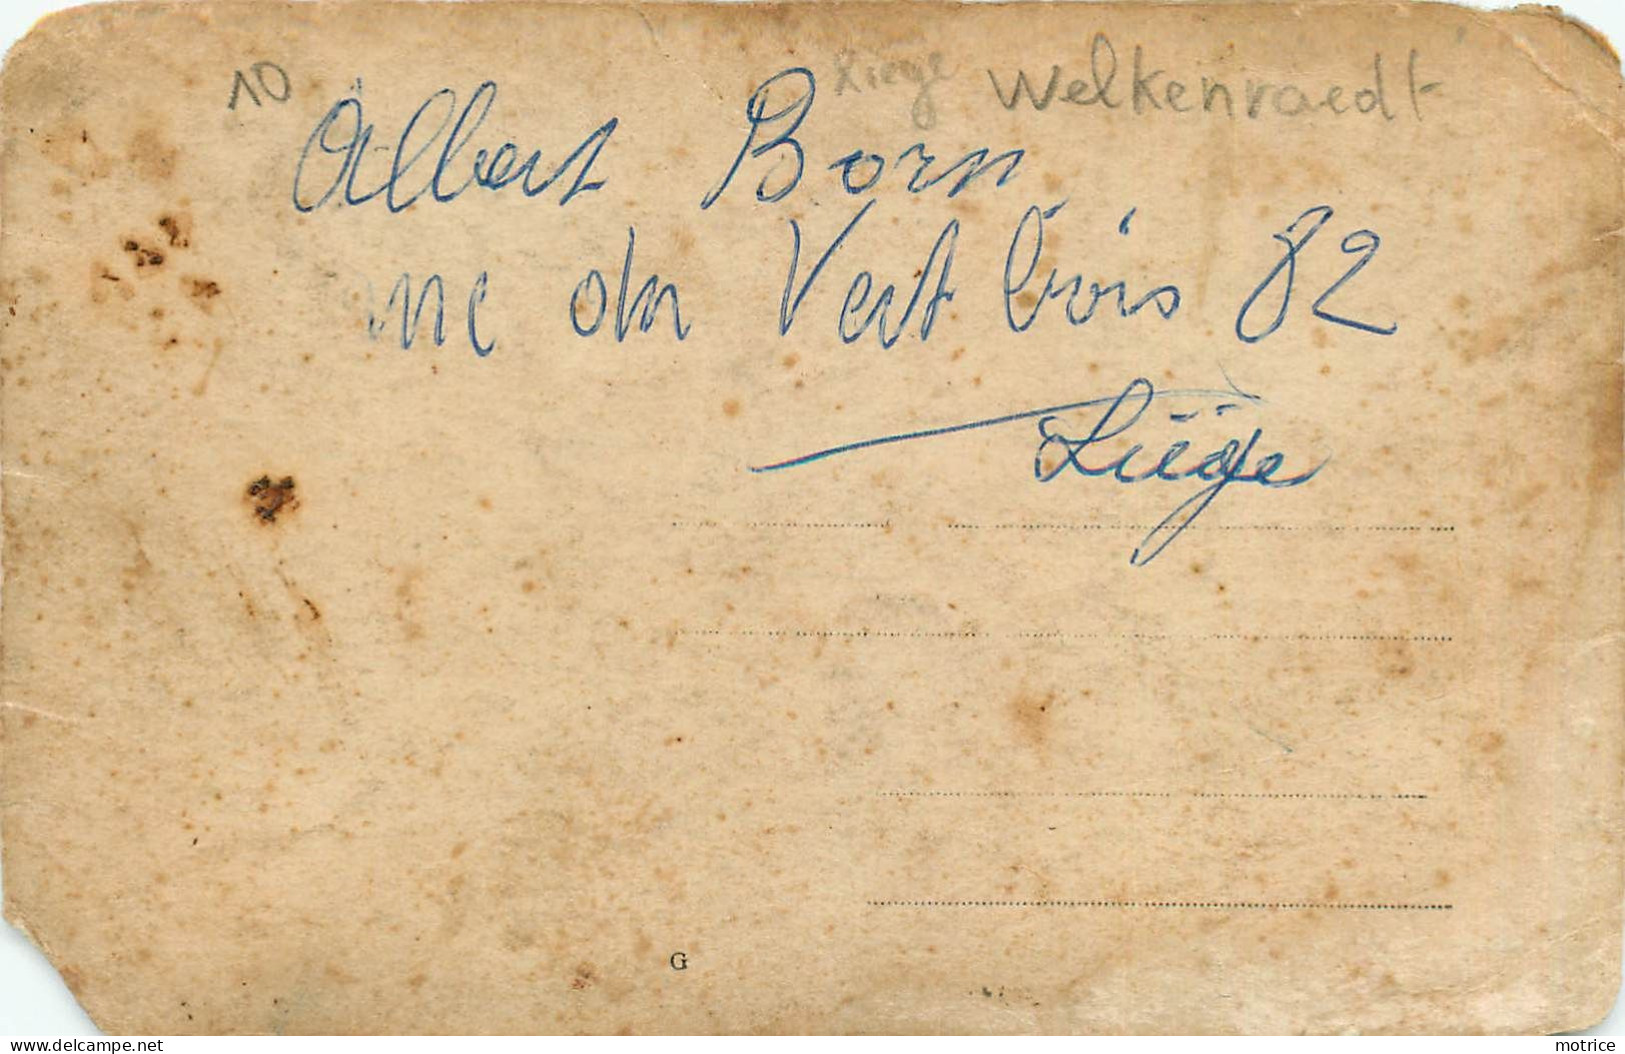 10 Liège Welkenraedt
Albert Born
rue du Vert bois 82
Liège
G
delcampe.net
motrice